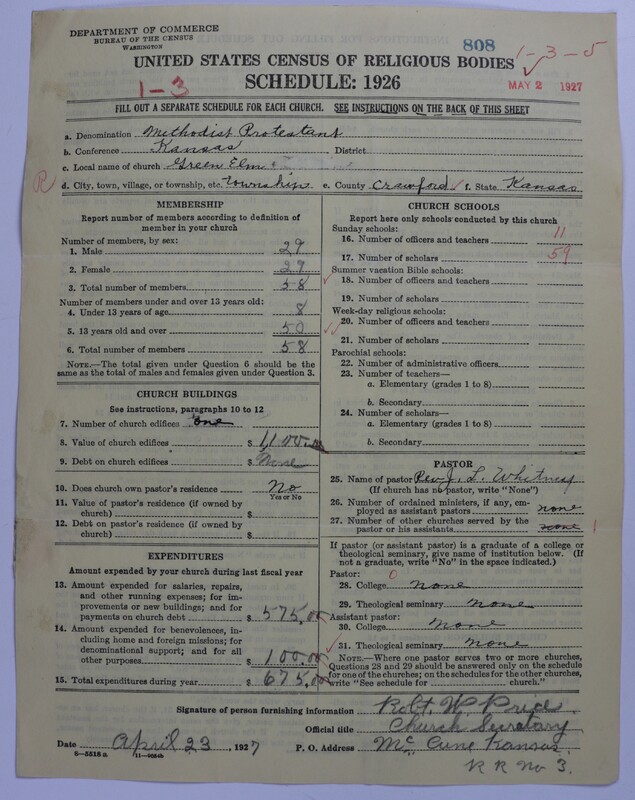 DEPARTMENT OF COMMERCE
BUREAU OF THE CENSUS
WASHINGTON
808
1-3-5
UNITED STATES CENSUS OF RELIGIOUS BODIES
1-3
SCHEDULE: 1926
MAY 2 1927
FILL OUT A SEPARATE SCHEDULE FOR EACH CHURCH. SEE INSTRUCTIONS ON THE BACK OF THIS SHEET
a. Denomination Methodist Protestant
b. Conference Kansas District
c. Local name of church Green Elm
R d. City, town, village, or township, etc. township e. County Crawford f. State Kansas
MEMBERSHIP
Report number of members according to definition of
member in your church
Number of members, by sex:
1. Male 29
2. Female 29
3. Total number of members 58
Number of members under and over 13 years old:
4. Under 13 years of age 8
5. 13 years old and over 50
6. Total number of members 58
NOTE.—The total given under Question 6 should be
same as the total of males and females given under Question 3.
CHURCH BUILDINGS
See instructions, paragraphs 10 to 12
7. Number of church edifices one
8. Value of church edifices $ 1,100.00
9. Debt on church edifices $ None
10. Does church own pastor's residence No
Yes or No
11. Value of pastor's residence (if owned by
church) $
12. Debt on pastor's residence (if owned by
church) $
EXPENDITURES
Amount expended by your church during last fiscal year
13. Amount expended for salaries, repairs,
and other running expenses; for im-
provements or new buildings; and for
payments on church debt $ 575.00
14. Amount expended for benevolences, in-
cluding home and foreign missions; for
denominational support; and for all
other purposes $ 100.00
15. Total expenditures during year $ 675.00
CHURCH SCHOOLS
Report here only schools conducted by this church
Sunday schools:
16. Number of officers and teachers 11
17. Number of scholars 59
Summer vacation Bible schools:
18. Number of officers and teachers
19. Number of scholars
Week-day religious schools:
20. Number of officers and teachers
21. Number of scholars
Parochial schools:
22. Number of administrative officers
23. Number of teachers—
a. Elementary (grades 1 to 8)
b. Secondary
24. Number of scholars—
a. Elementary (grades 1 to 8)
b. Secondary
PASTOR
25. Name of pastor Rev J. L. Whitney
(If church has no pastor, write "None")
26. Number of ordained ministers, if any, em-
ployed as assistant pastors none
27. Number of other churches served by the
pastor or his assistants none 1
If pastor (or assistant pastor) is a graduate of a college or
theological seminary, give name of institution below. (If
not a graduate, write "No" in the space indicated.)
Pastor: 0
28. College none
29. Theological seminary none
Assistant pastor:
30. College None
31. Theological seminary none
NOTE.—Where one pastor serves two or more churches,
Questions 28 and 29 should be answered only on the schedule
for one of the churches; on the schedules for the other churches,
write "See schedule for church."
Signature of person furnishing information Robt. W. Price
Official title Church Secretary
Date April 23, 1927 P. O. Address Mc Cune Kansas.
R R No 3.